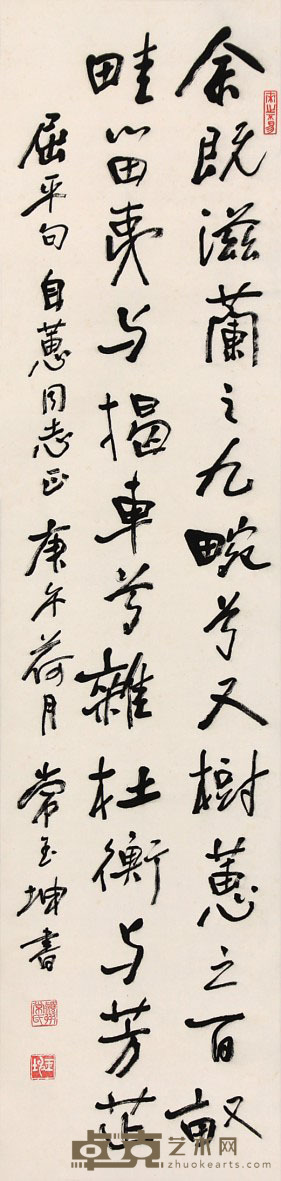 余既滋蘭之九畹兮又樹蕙之百畝
畦留夷与揭車兮雜杜衡与芳芷
屈平句 自蕙同志正 庚午荷月 常玉坤書
卓克艺术网
zhuokearts.com